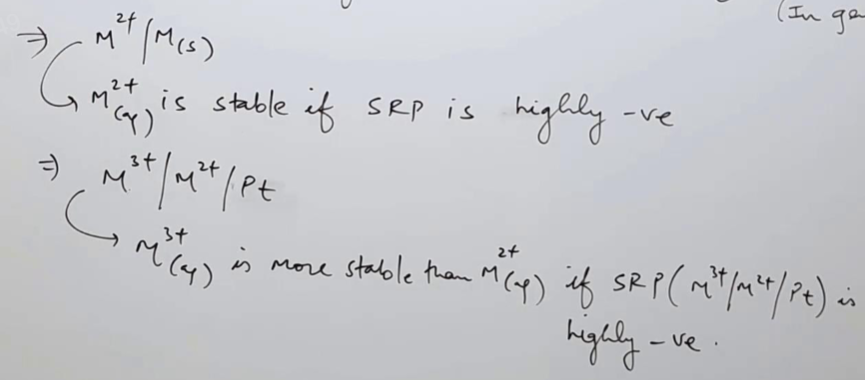 (In ga
⇒ M²⁺/M(s)
M²⁺(aq) is stable if SRP is highly -ve
⇒ M³⁺/M²⁺/Pt
M³⁺(aq) is more stable than M²⁺(aq) if SRP(M³⁺/M²⁺/Pt) is
highly -ve.